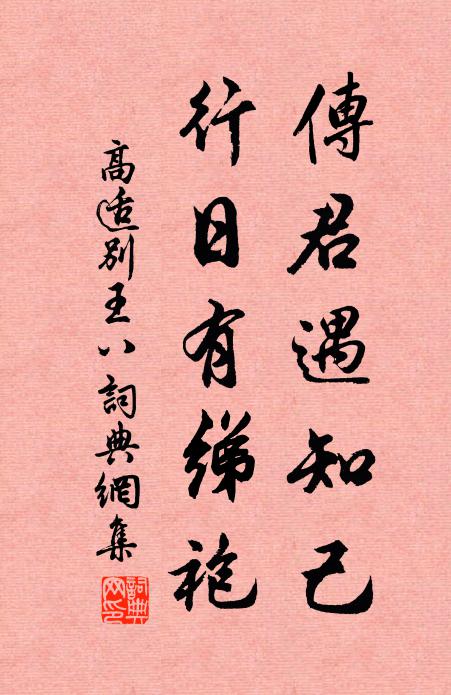 傳君遇知己
行日有綈袍
高適別王八詞典網集
詞典網印